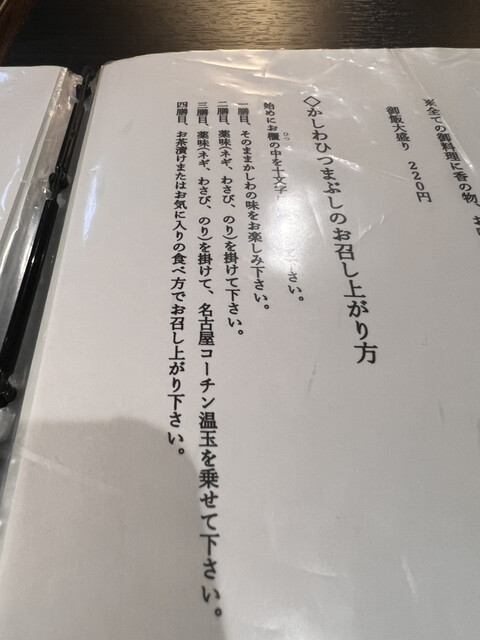 ※全ての御料理に香の物、
御飯大盛り 220円
◇かしわひつまぶしのお召し上がり方
始めにお櫃の中を十文字
ひつ
下さい。
一膳目、そのままかしわの味をお楽しみ下さい。
二膳目、薬味(ネギ、わさび、のり)を掛けて下さい。
三膳目、薬味(ネギ、わさび、のり)を掛けて、名古屋コーチン温玉を乗せて下さい。
四膳目、お茶漬けまたはお気に入りの食べ方でお召し上がり下さい。